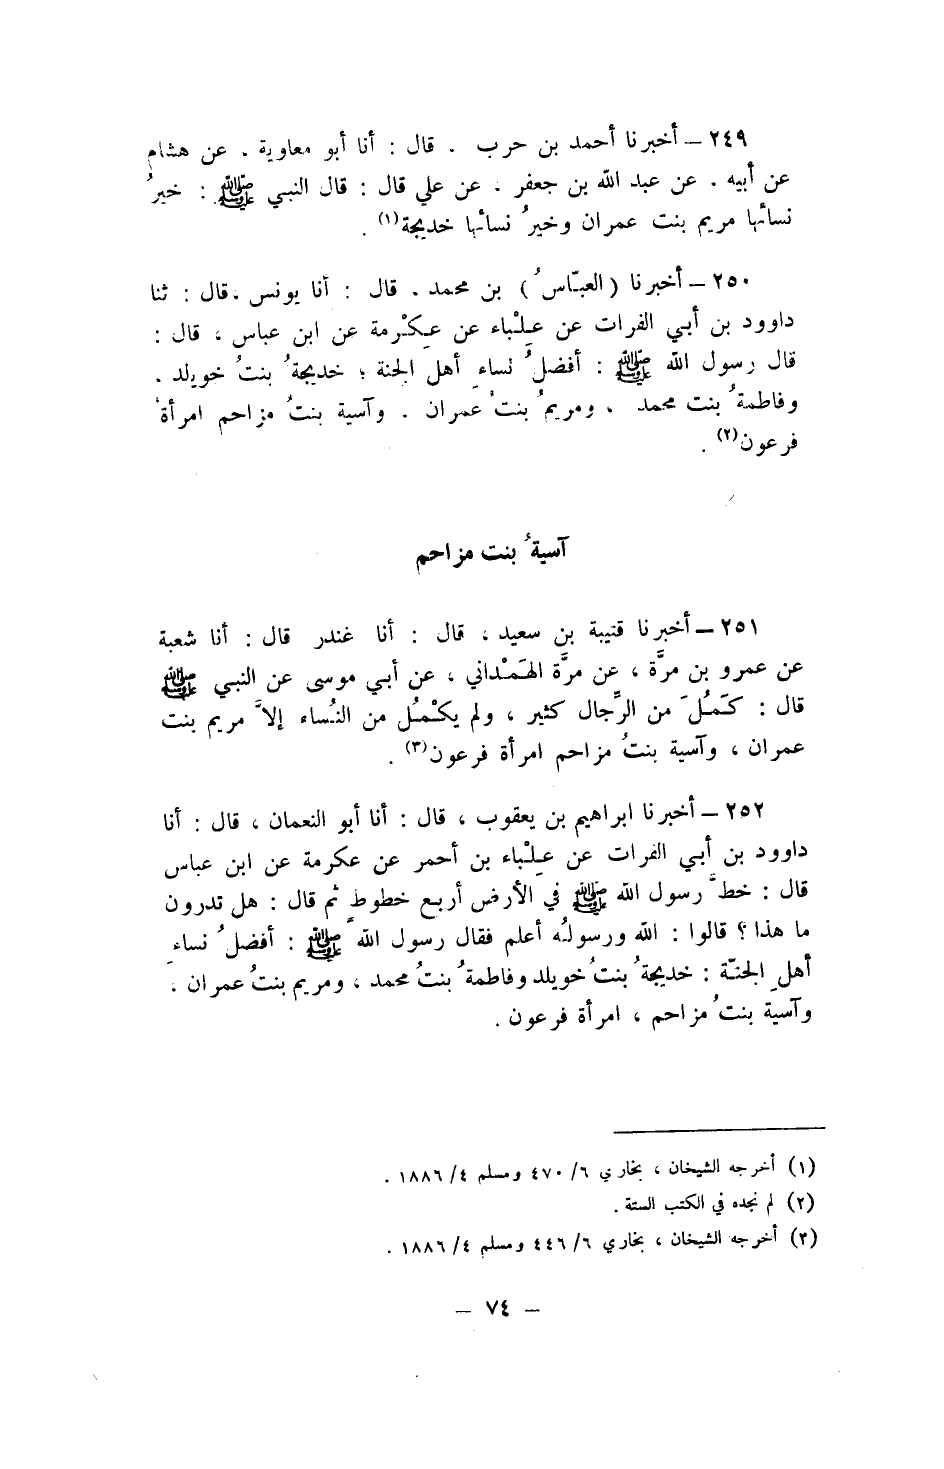 ٢٤٩ – أخبرنا أحمد بن حرب . قال : أنا أبو معاوية . عن هشام
عن أبيه . عن عبد الله بن جعفر . عن علي قال : قال النبي ﷺ : خيرُ
نسائها مريم بنت عمران وخيرُ نسائها خديجة(١) .
٢٥٠ – أخبرنا (العبّاسُ) بن محمد . قال : أنا يونس .قال : ثنا
داوود بن أبي الفرات عن عِلْباء عن عِكْرمة عن ابن عباس ، قال :
قال رسول الله ﷺ : أفضلُ نساءِ أهل الجنة ؛ خديجةُ بنتُ خويلد .
وفاطمةُ بنت محمد . ومريمُ بنتُ عمران . وآسية بنتُ مزاحم امرأةُ
فرعون(٢) .
آسيةُ بنت مزاحم
٢٥١ – أخبرنا قتيبة بن سعيد ، قال : أنا غندر قال : أنا شعبة
عن عمرو بن مرَّة ، عن مرَّة الهَمْداني ، عن أبي موسى عن النبي ﷺ
قال : كَمُلَ من الرِّجال كثير ، ولم يكْمُل من النُساء إلاَّ مريم بنت
عمران ، وآسية بنتُ مزاحم امرأة فرعون(٣) .
٢٥٢ – أخبرنا ابراهيم بن يعقوب ، قال : أنا أبو النعمان ، قال : أنا
داوود بن أبي الفرات عن عِلْباء بن أحمر عن عكرمة عن ابن عباس
قال : خطَّ رسول الله ﷺ في الأرض أربع خطوطٍ ثم قال : هل تدرون
ما هذا ؟ قالوا : الله ورسولُه أعلم فقال رسول الله ﷺ : أفضلُ نساءِ
أهلِ الجنّة : خديجةُ بنتُ خويلد وفاطمةُ بنتُ محمد ، ومريم بنتُ عمران .
وآسية بنتُ مزاحم ، امرأة فرعون .
(١) أخرجه الشيخان ، بخاري ٦/ ٤٧٠ ومسلم ٤/ ١٨٨٦ .
(٢) لم نجده في الكتب الستة .
(٣) أخرجه الشيخان ، بخاري ٦/ ٤٤٦ ومسلم ٤/ ١٨٨٦ .
– ٧٤ –